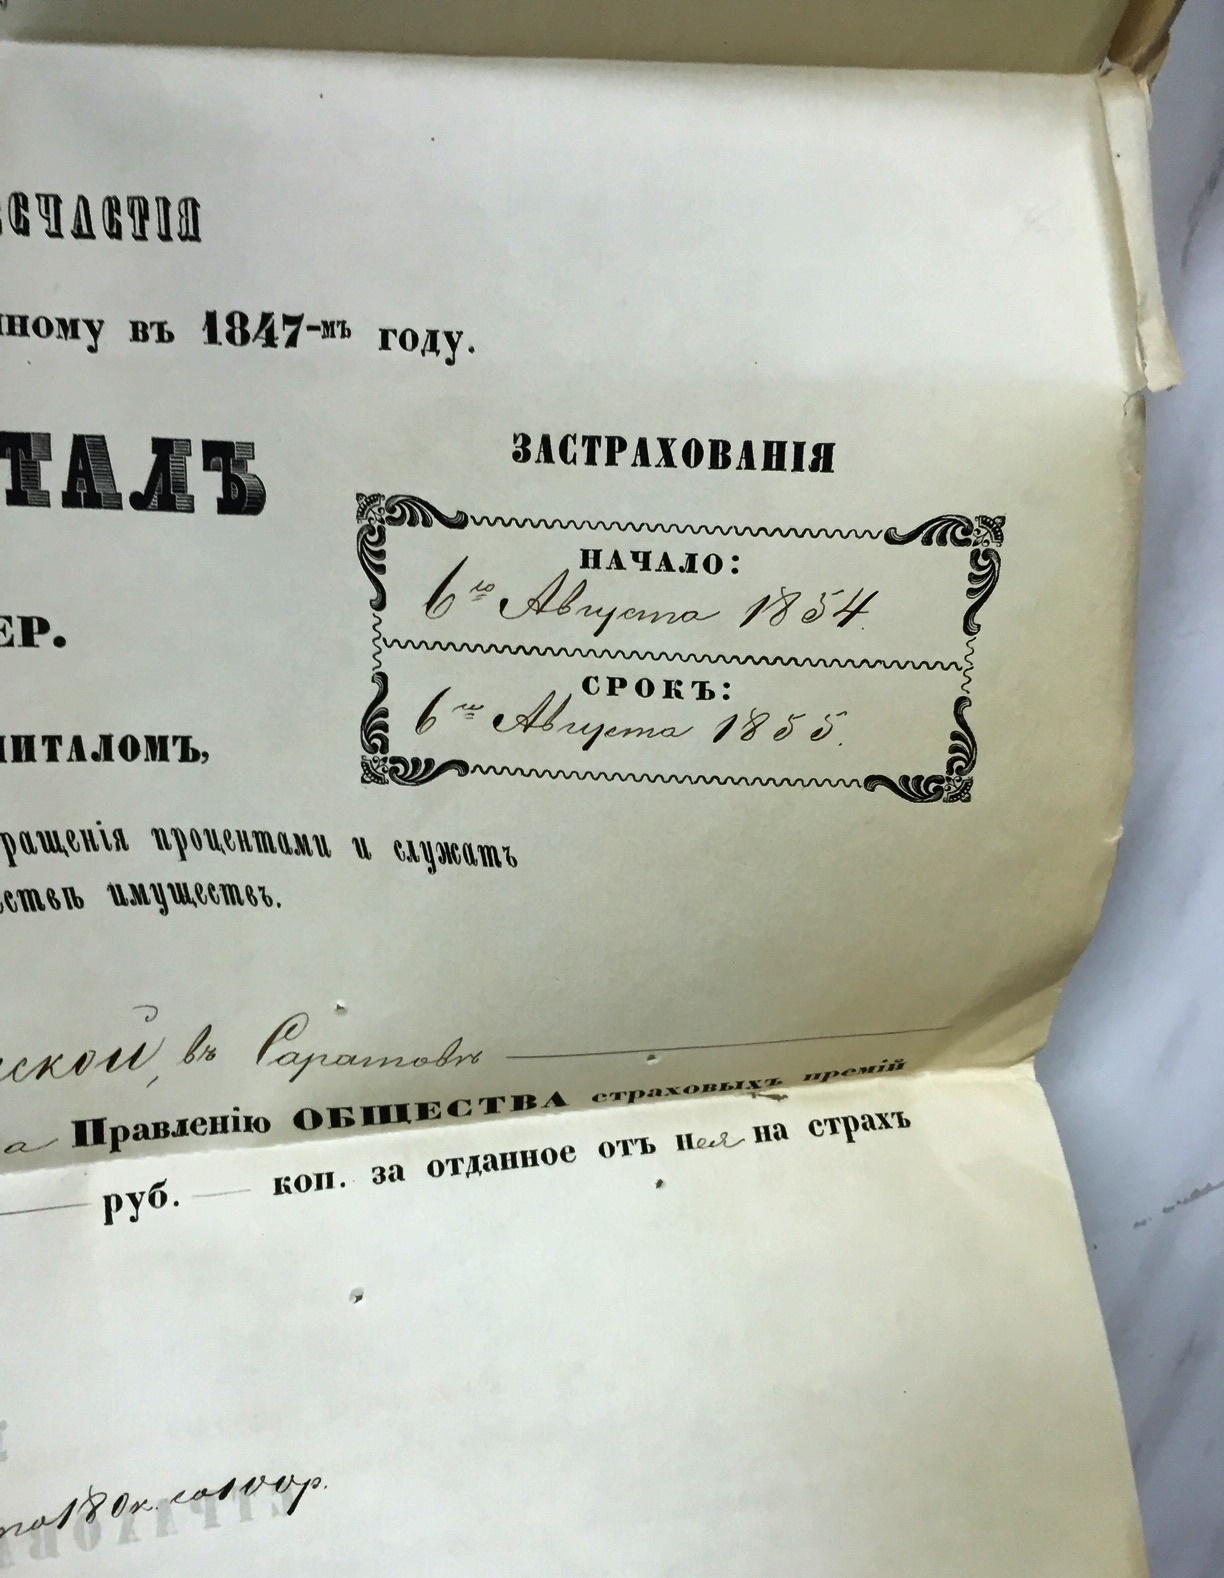 СЧАСТІЯ
нному въ 1847-мъ году.
ТАЛЪ
ЗАСТРАХОВАНІЯ
НАЧАЛО:
6го Августа 1854.
ЕР.
СРОКЪ:
6го Августа 1855.
ПИТАЛОМЪ,
ращенія процентами и служатъ
ествѣ имуществъ.
ской, въ Саратовѣ
а Правленію ОБЩЕСТВА страховыхъ премій
руб. — коп. за отданное отъ нея на страхъ
по 180 к. со 100 р.